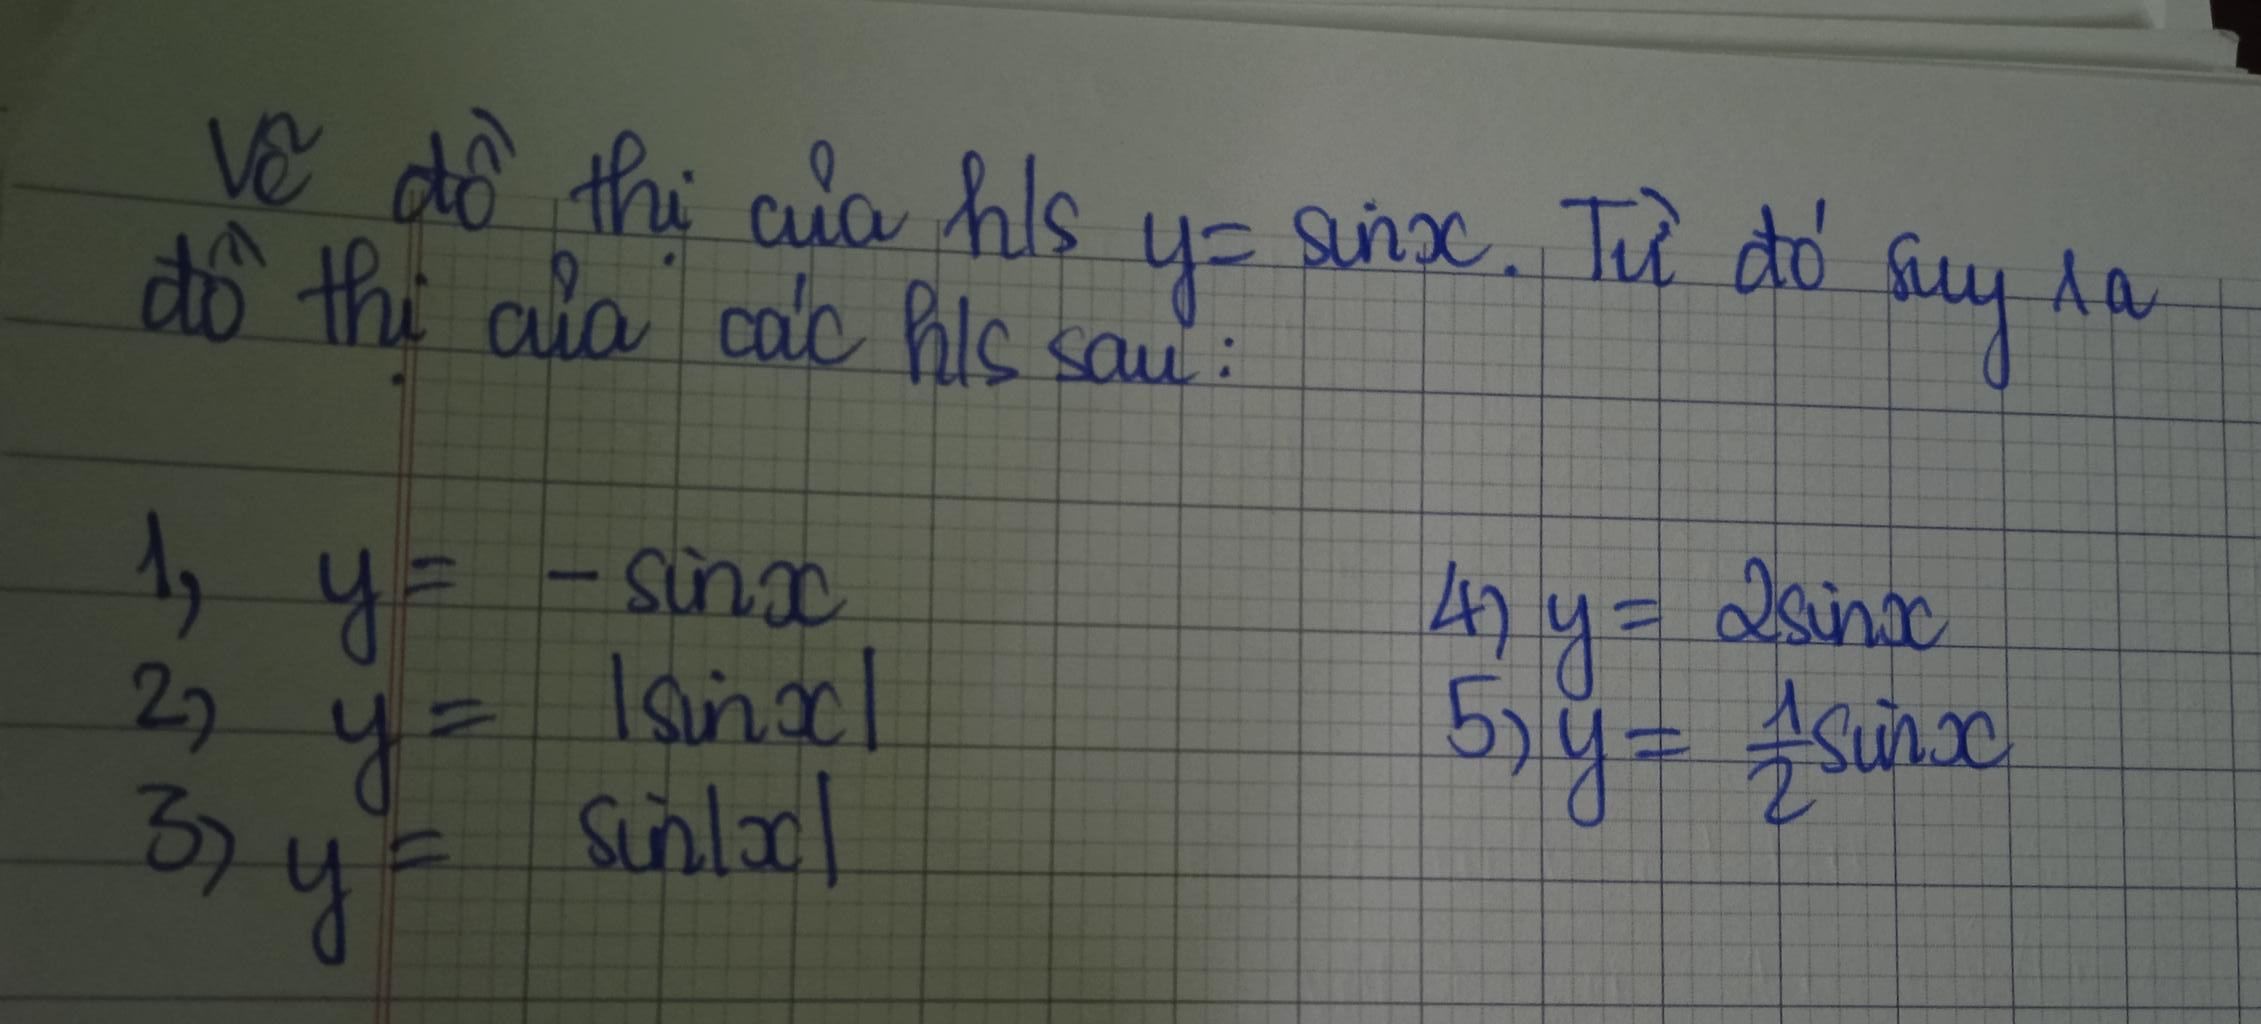 Vẽ đồ thị của h/s y = sinx. Từ đó suy ra
đồ thị của các h/s sau:
1, y = - sinx
2, y = |sinx|
3, y = sin|x|
4, y = 2sinx
5, y = 1/2 sinx